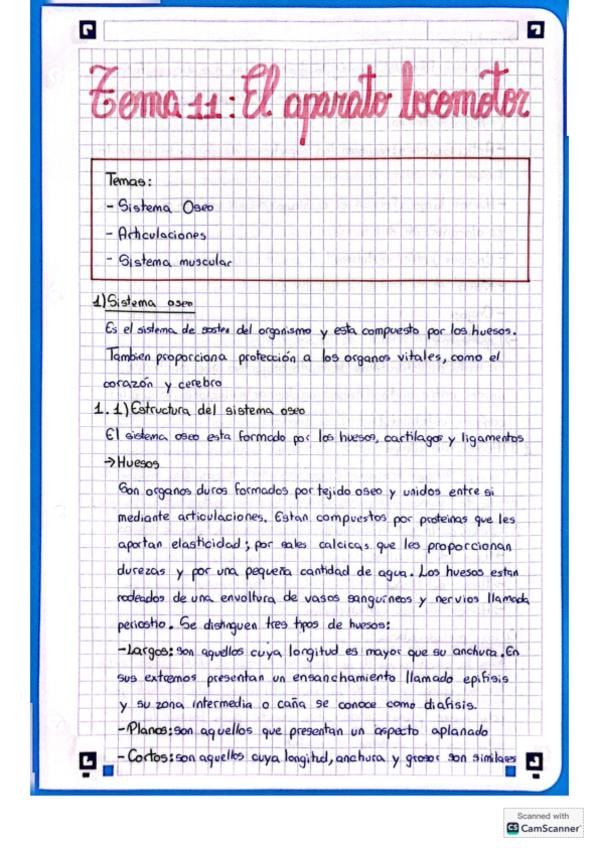 Tema 11: El aparato locomotor
Temas:
- Sistema Oseo
- Articulaciones
- Sistema muscular
1) Sistema oseo
Es el sistema de sosten del organismo y esta compuesto por los huesos.
Tambien proporciona protección a los organos vitales, como el
corazón y cerebro
1.1) Estructura del sistema oseo
El sistema oseo esta formado por los huesos, cartilagos y ligamentos
→ Huesos
Son organos duros formados por tejido oseo y unidos entre si
mediante articulaciones. Estan compuestos por proteinas que les
aportan elasticidad; por sales calcicas que les proporcionan
durezas y por una pequeña cantidad de agua. Los huesos estan
rodeados de una envoltura de vasos sanguineos y nervios llamada
periostio. Se distinguen tres tipos de huesos:
- Largos: son aquellos cuya longitud es mayor que su anchura. En
sus extremos presentan un ensanchamiento llamado epifisis
y su zona intermedia o caña se conoce como diafisis.
- Planos: son aquellos que presentan un aspecto aplanado
- Cortos: son aquellos cuya longitud, anchura y grosor son similares
Scanned with
CS CamScanner